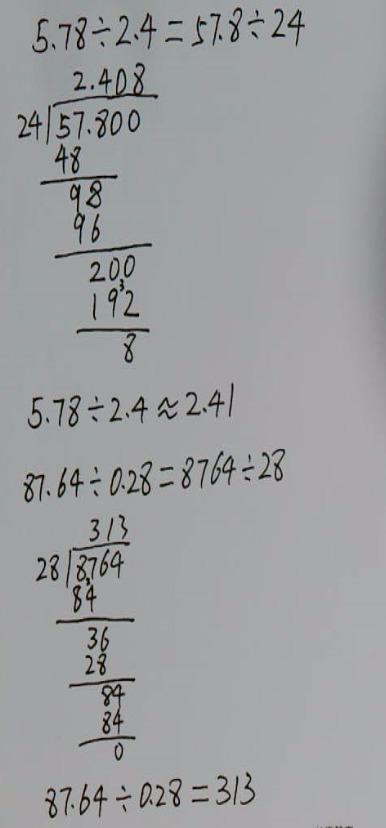 5.78÷2.4=57.8÷24
2.408
24 57.800
48
98
96
200
192
8
5.78÷2.4≈2.41
87.64÷0.28=8764÷28
313
28 8764
84
36
28
84
84
0
87.64÷0.28=313